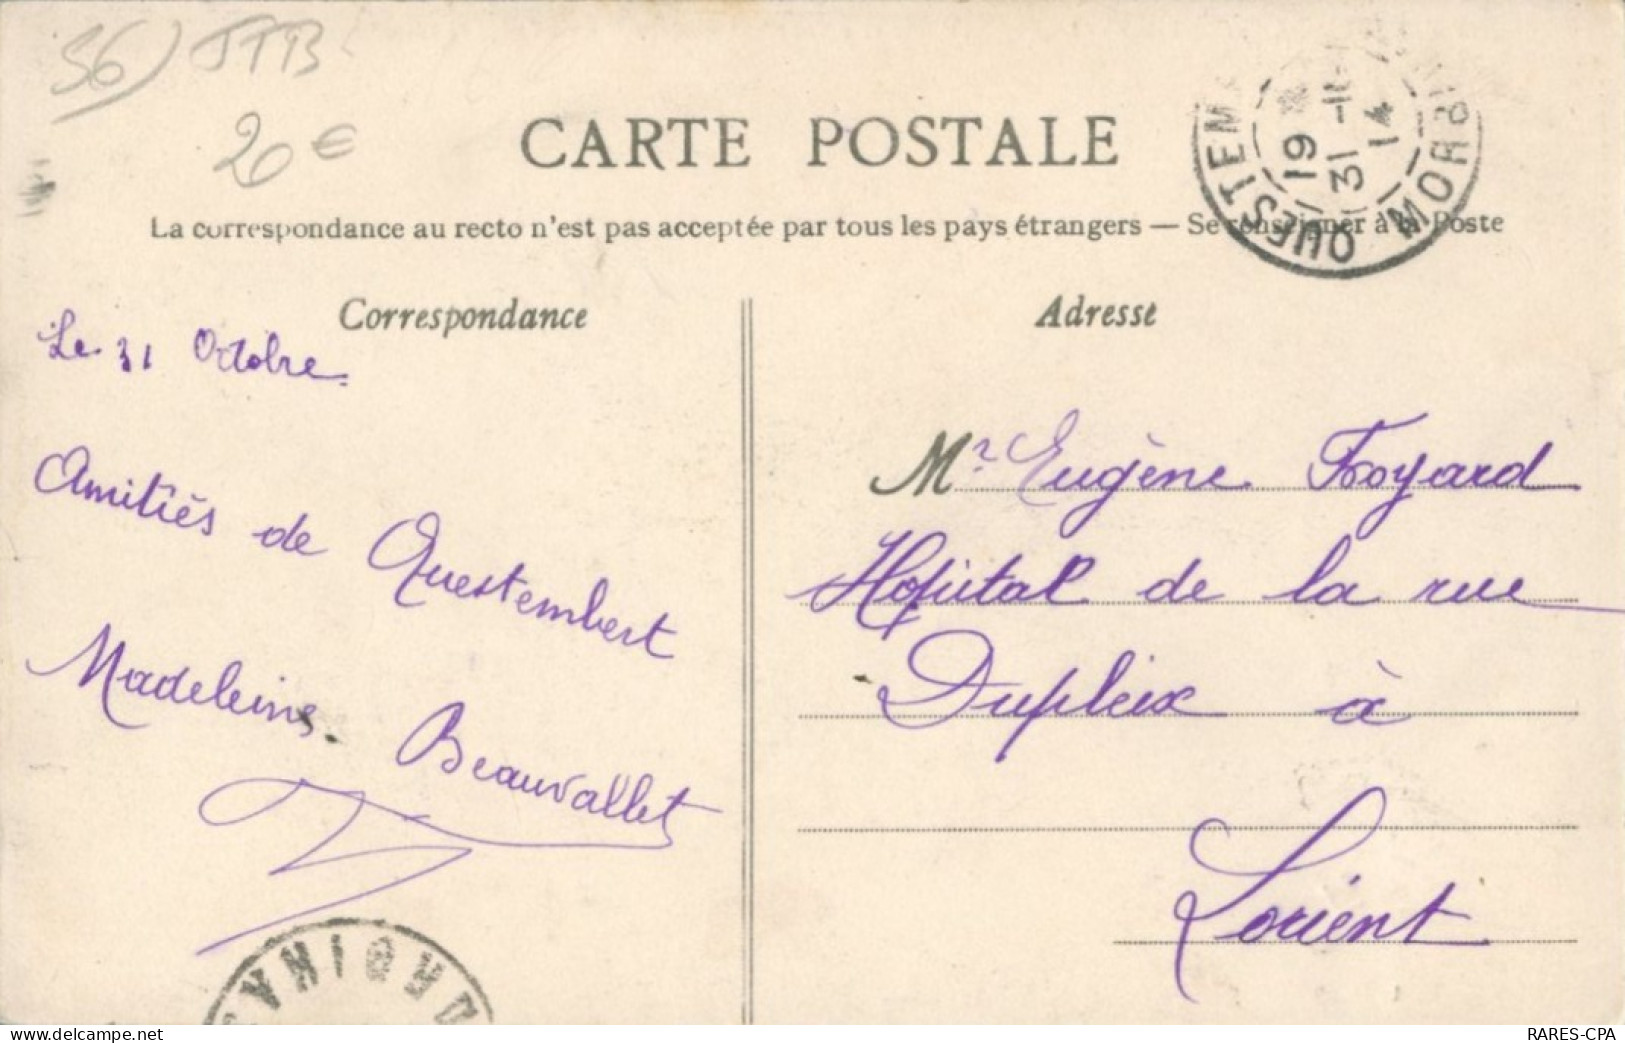 56) JTB
20€
CARTE POSTALE
QUESTEM
MORBI
19
31 -10
14
La correspondance au recto n'est pas acceptée par tous les pays étrangers — Se renseigner à la Poste
Correspondance
Le 31 Octobre
Amitiés de Questembert
Madeleine Beauvallet
Adresse
Mr Eugène Froyard
Hôpital de la rue
Dupleix à
Lorient
www.delcampe.net
RARES-CPA